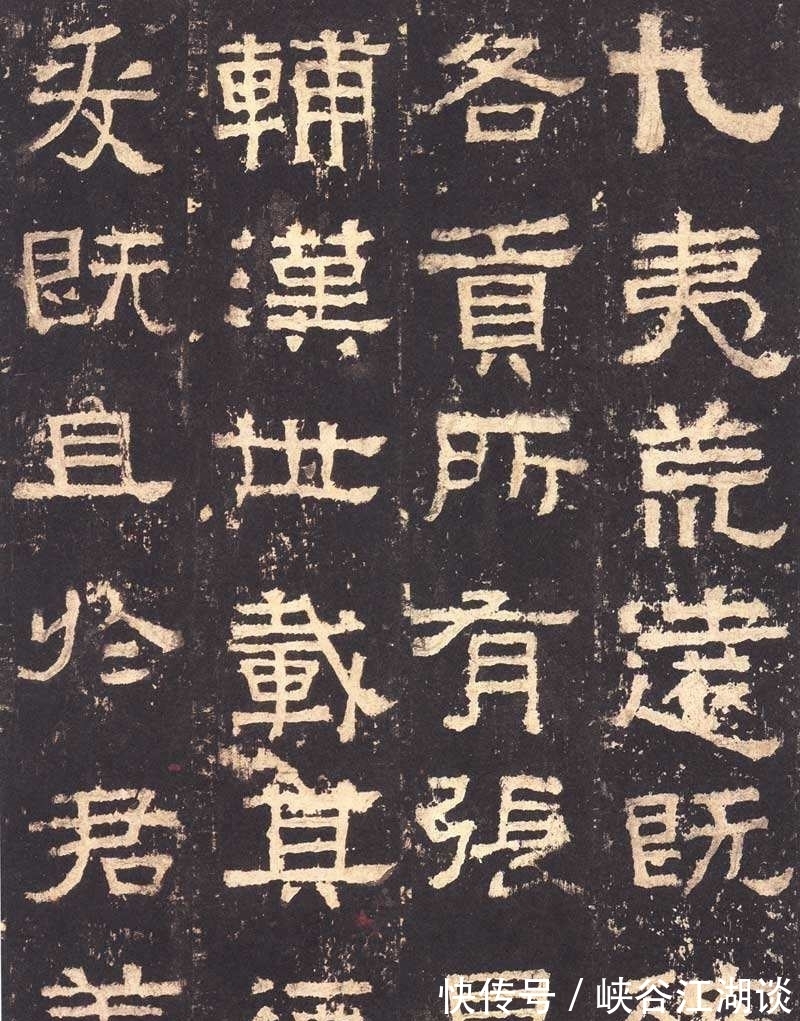 九夷荒遠既
各貢所有張
輔漢世載其
爰既且於君
快传号 / 峡谷江湖谈